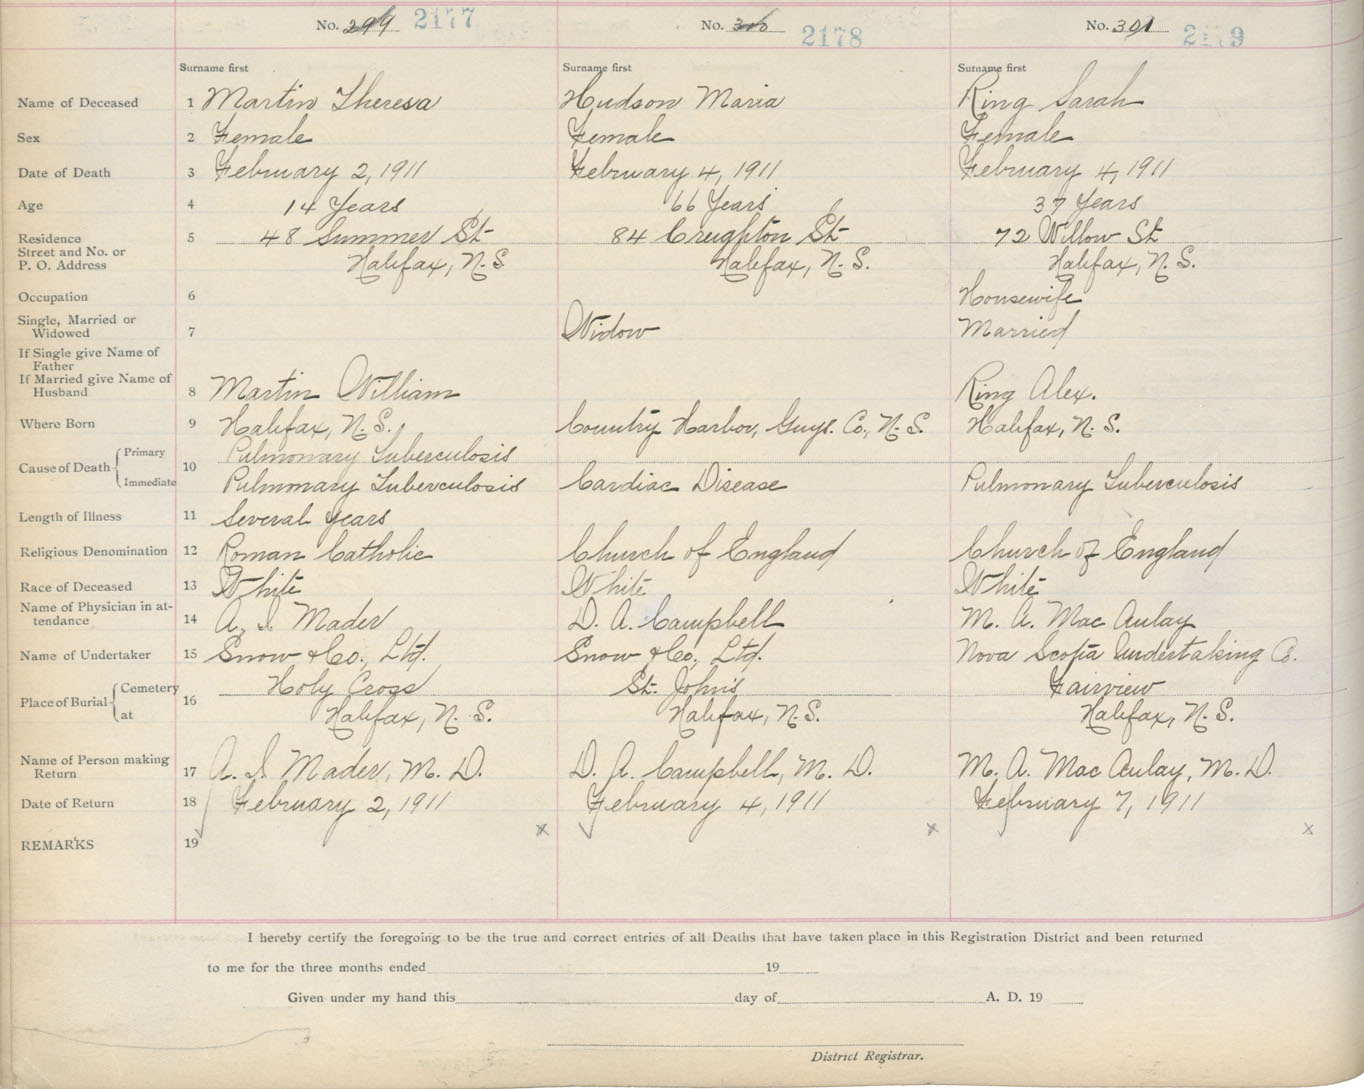 No. 299 2177 No. 300 2178 No. 301 2179
Surname first Surname first Surname first
Name of Deceased 1 Martin Theresa Hudson Maria Ring Sarah
Sex 2 Female Female Female
Date of Death 3 February 2, 1911 February 4, 1911 February 4, 1911
Age 4 14 Years 66 Years 37 Years
Residence 5 48 Summer St 84 Creighton St 72 Willow St
Street and No. or
P. O. Address Halifax, N.S. Halifax, N.S. Halifax, N.S.
Occupation 6 Housewife
Single, Married or
Widowed 7 Widow Married
If Single give Name of
Father
If Married give Name of
Husband 8 Martin William Ring Alex.
Where Born 9 Halifax, N.S. Country Harbor, Guys. Co., N.S. Halifax, N.S.
Primary Pulmonary Tuberculosis
Cause of Death 10
Immediate Pulmonary Tuberculosis Cardiac Disease Pulmonary Tuberculosis
Length of Illness 11 Several years
Religious Denomination 12 Roman Catholic Church of England Church of England
Race of Deceased 13 White White White
Name of Physician in at-
tendance 14 A. I Mader D. A. Campbell M. A. Mac Aulay
Name of Undertaker 15 Snow & Co., Ltd. Snow & Co, Ltd. Nova Scotia Undertaking Co.
Cemetery Holy Cross St. John's Fairview
Place of Burial 16
at Halifax, N.S. Halifax, N.S. Halifax, N.S.
Name of Person making
Return 17 A. I Mader, M. D. D. A. Campbell, M. D. M. A. Mac Aulay, M. D.
Date of Return 18 February 2, 1911 February 4, 1911 February 7, 1911
REMARKS 19 x x x
I hereby certify the foregoing to be the true and correct entries of all Deaths that have taken place in this Registration District and been returned
to me for the three months ended 19
Given under my hand this day of A. D. 19
District Registrar.